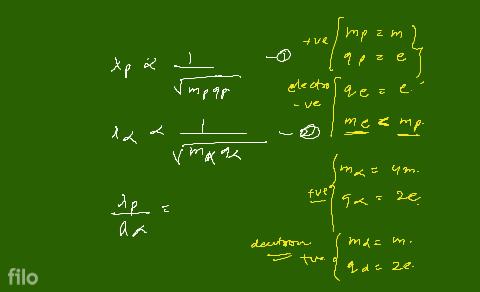 λp ∝ 1/√(mp qp) —①
λα ∝ 1/√(mα qα) —②
λp/λα =
+ve { mp = m
qp = e }
electro -ve { qe = e
me < mp
+ve { mα = 4m
qα = 2e
+ve { md = m
qd = 2e
filo